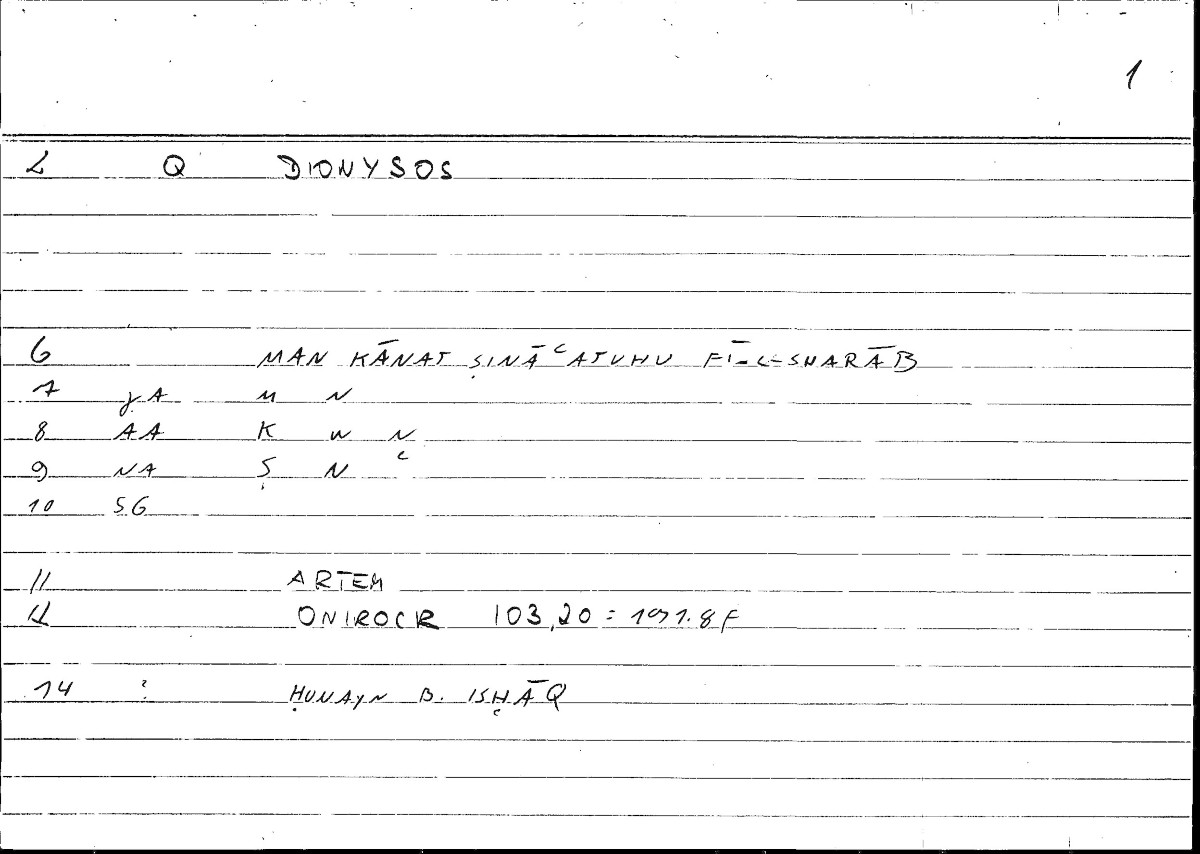 1
2 Q DIONYSOS
6 MAN KĀNAT ṢINĀʿATUHU FĪ-L-SHARĀB
7 γA M N
8 AA K W N
9 NA Ṣ N ʿ
10 SG
11 ARTEM
12 ONIROCR 103,20 = 191.8 F
14 ? ḤUNAYN B. ISḤĀQ